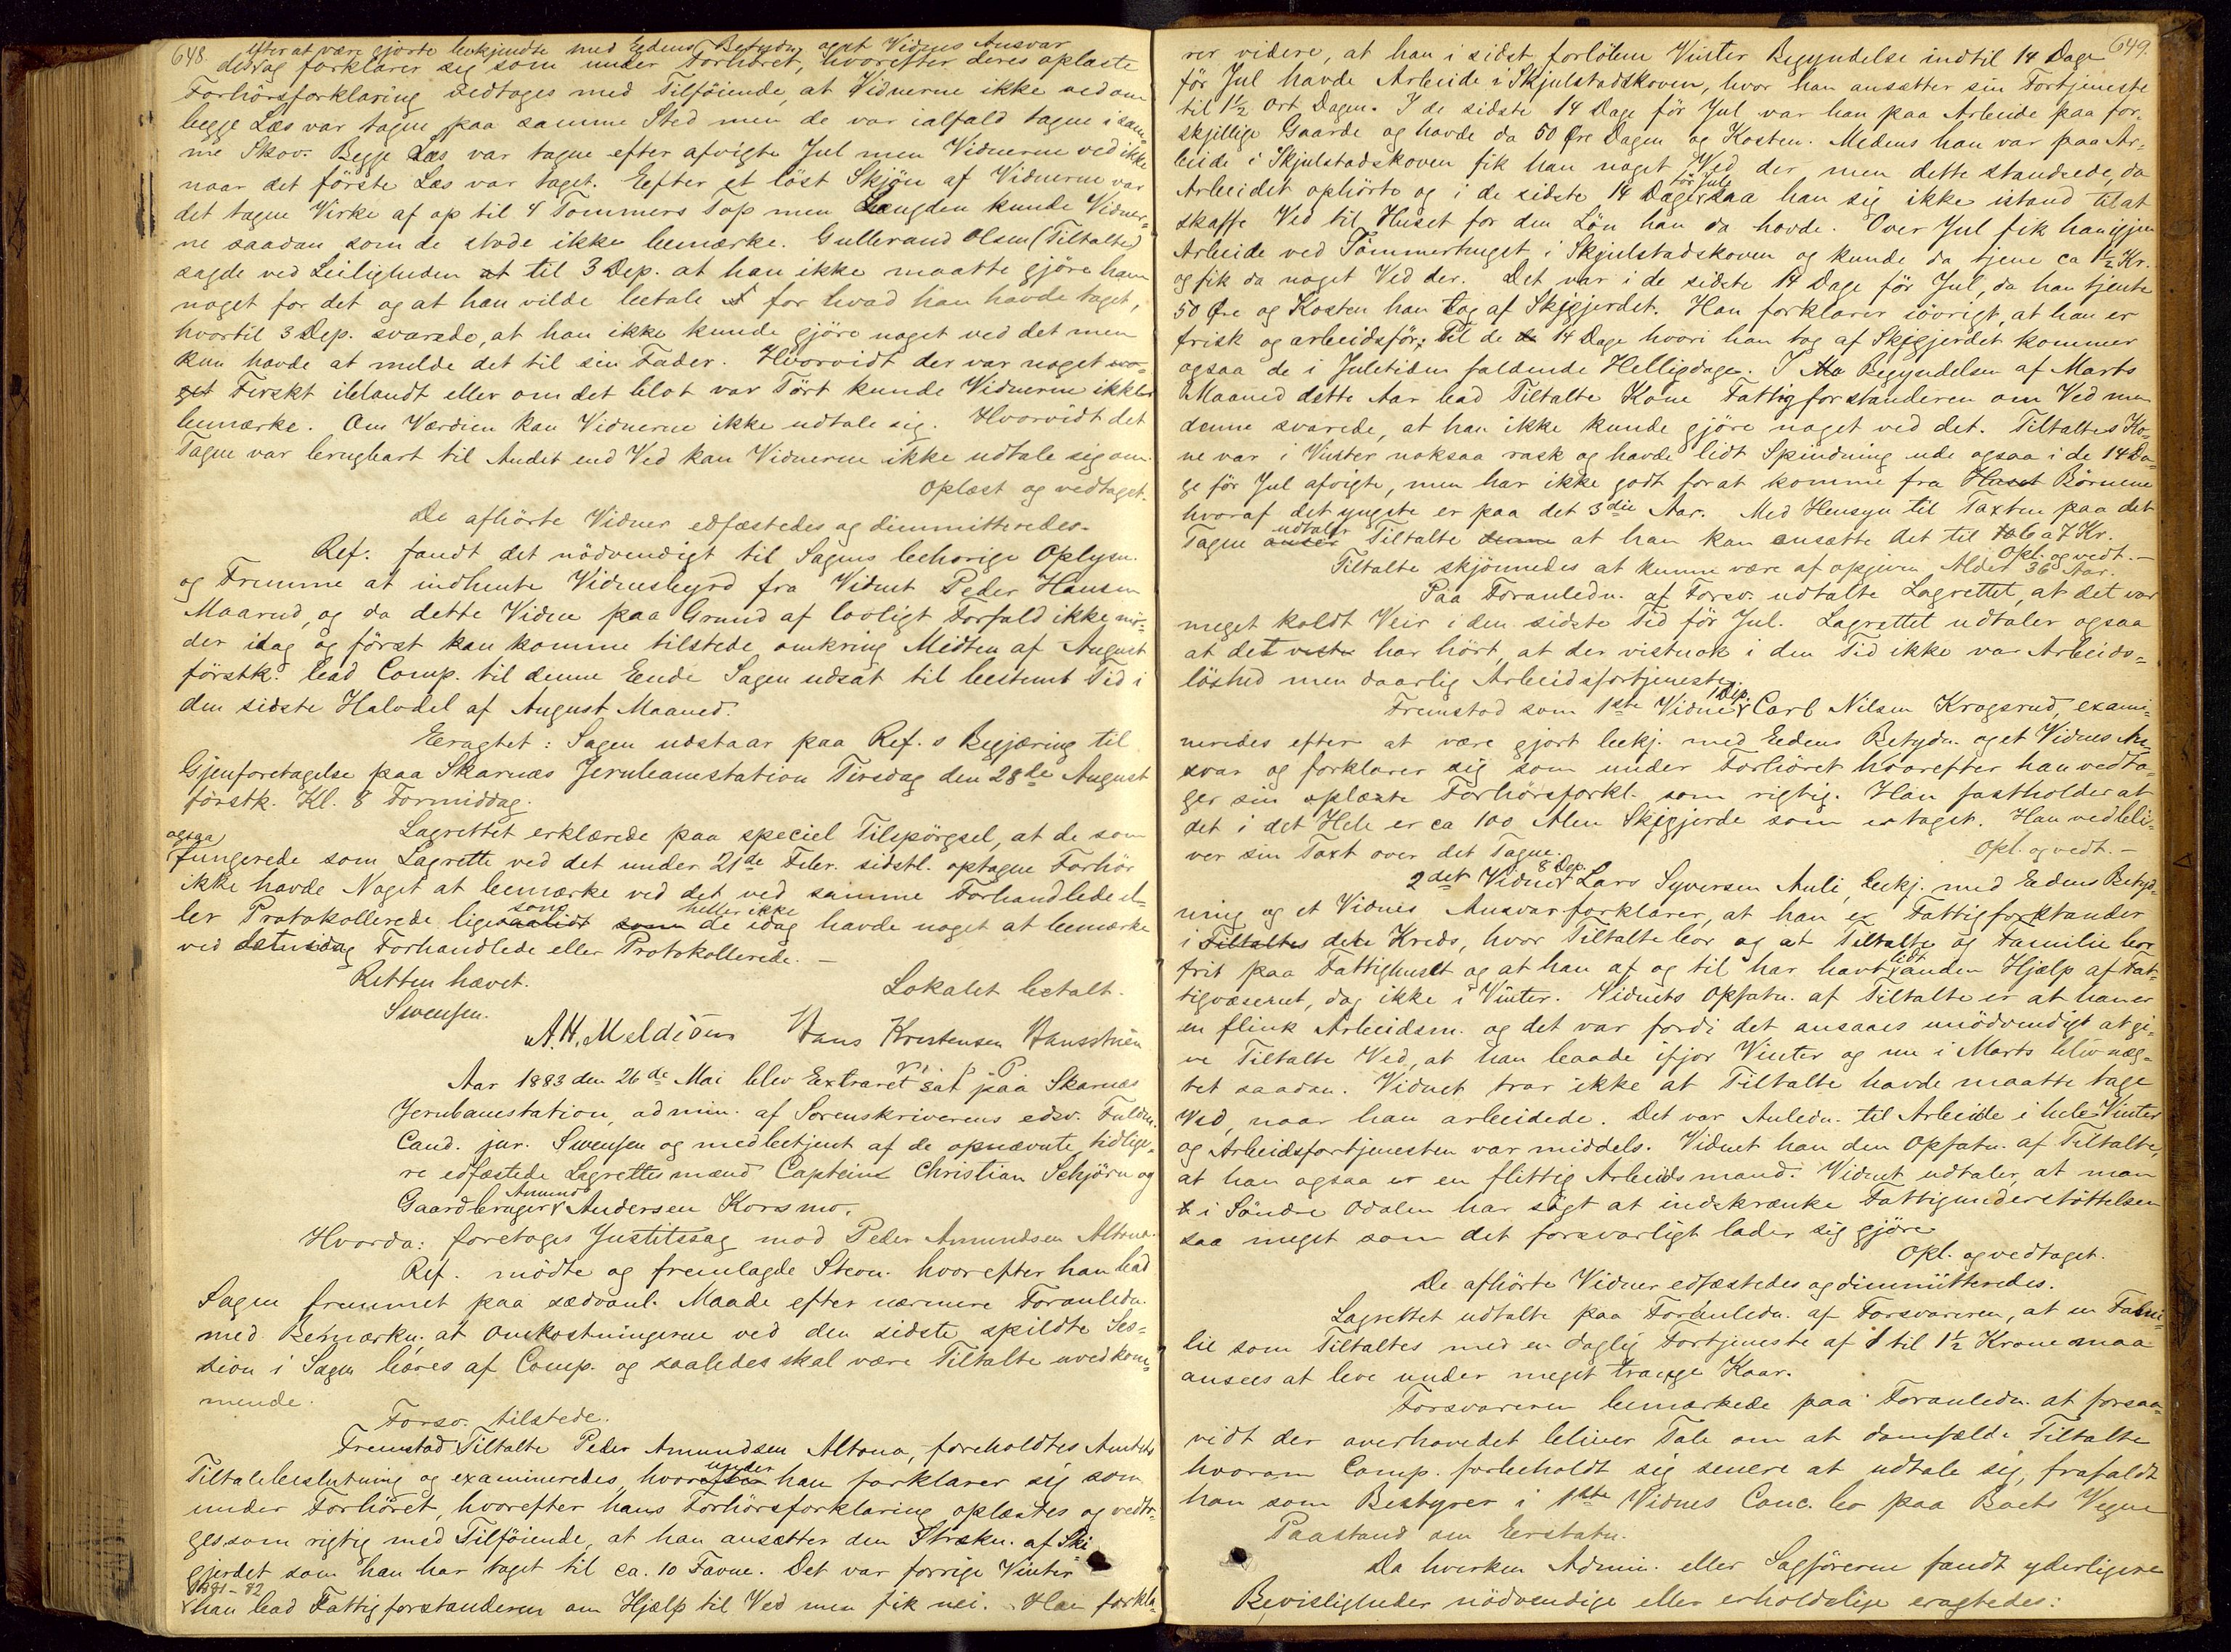 648.
efter at være gjorte bekjendte med Eedens Betydn. og et Vidnes Ansvar
desvag forklarer sig som under Forhøret, hvorefter deres oplæste
Forhørsforklaring vedtages med Tilføiende, at Vidnerne ikke ved om
begge Læs var tagne paa samme Sted men de var ialfald tagne i sam-
me Skov. Begge Læs var tagne efter afvigte Jul men Vidnerne ved ikke
naar det første Læs var taget. Eefter et løst Skjøn af Vidnerne var
det tagne Virke af op til 4 Tommers Top men Længden kunde Vidner-
ne saadan som de stode ikke bemærke. Gulbrand Olsen (Tiltalte)
sagde ved Leiligheden at til 3 Dep. at han ikke maatte gjøre ham
noget for det og at han vilde betale for hvad han havde taget,
hvortil 3 Dep. svarede, at han ikke kunde gjøre noget ved det men
kun havde at melde det til sin Fader. Hvorvidt der var noget
Ferskt iblandt eller om det blot var Tørt kunde Vidnerne ikke
bemærke. Om Værdien kan Vidnerne ikke udtale sig. Hvorvidt det
Tagne var brugbart til Andet end Ved kan Vidnerne ikke udtale sig om.
Oplæst og vedtaget.
De afhørte Vidner edfæstedes og dimmitteredes.
Ref. fandt det nødvendigt til Sagens behørige Oplysn.
og Fremme at indhente Vidnesbyrd fra Vidnet Peder Hansen
Maarud, og da dette Vidne paa Grund af lovligt Forfald ikke mø-
der idag og først kan komme tilstede omkring Midten af August
førstk. bad Comp. til denne Ende Sagen udsat til bestemt Tid i
den sidste Halvdel af August Maaned.
Eragtet: Sagen udstaar paa Ref.s Begjæring til
Gjenforetagelse paa Skarnæs Jernbanestation Tirsdag den 28de August
førstk. Kl. 8 Formiddag.
Lagrettet erklærede paa speciel Tilspørgsel, at de som
ogsaa
fungerede som Lagrette ved det under 21de Febr. sidstl. optagne Forhør
ikke havde Noget at bemærke ved det ved samme Forhandlede el-
ler Protokollerede ligesaalidt som de idag heller ikke havde noget at bemærke
ved det idag Forhandlede eller Protokollerede. —
Retten hævet.
Lokalet betalt.
Swensen.
A. H. Meldiõus Hans Kristensen
Aar 1883 den 26de Mai blev Extraret sat paa Skarnæs
Jernbanestation, admin. af Sorenskriverens edsv. Fuldm.
Cand. jur. Swensen og medbetjent af de opnævnte tidlige-
re edfæstede Lagrettesmænd Capteine Christian Schjørn og
Gaardbruger Amund Andersen Korsmo.
Hvorda: foretoges Justitssag mod Peder Amundsen Altona.
Ref. mødte og fremlagde Stevn. hvorefter han bad
Sagen fremmet paa sædvanl. Maade efter nærmere Foranledn.
med Bemærkn. at Omkostningerne ved den sidste spildte Ses-
sion i Sagen bæres af Comp. og saaledes skal være Tiltalte uvedkom-
mende.
Forsv. tilstede.
Fremstod Tiltalte Peder Amundsen Altona, foreholdtes Amtets
Tiltalebeslutning og examineredes, hvorunder han forklarer sig som
under Forhøret, hvorefter hans Forhørsforklaring oplæstes og vedto-
ges som rigtig med Tilføiende, at han ansætter den Strækn. af Ski-
gjerdet som han har taget til ca. 10 Favne. Det var forrige Vinter
1881-82
han bad Fattigforstanderen om Hjælp til Ved men fik nei. Han forkla-
649.
rer videre, at han i sidst forløbne Vinter Begyndelse indtil 14 Dage
før Jul havde Arbeide i Skjulstadskoven, hvor han ansætter sin Fortjeneste
til 1½ Ort Dagen. I de sidste 14 Dage før Jul var han paa Arbeide paa for-
skjellige Gaarde og havde da 50 Øre Dagen og Kosten. Medens han var paa Ar-
beide i Skjulstadskoven fik han noget Ved der men dette standsede, da
Arbeidet ophørte og i de sidste 14 Dage før Jul saa han sig ikke istand til at
skaffe Ved til Huset for den Løn han da havde. Over Jul fik han igjen
Arbeide ved Tømmerhuget i Skjulstadskoven og kunde da tjene ca 1½ Kr.
og fik da noget Ved der. Det var i de sidste 14 Dage før Jul, da han tjente
50 Øre og Kosten han tog af Skigjerdet. Han forklarer iøvrigt, at han er
frisk og arbeidsfør; Til de 14 Dage hvori han tog af Skigjerdet kommer
ogsaa de i Juletiden faldende Helligdage. I Begyndelsen af Marts
Maaned dette Aar bad Tiltalte Kone Fattigforstanderen om Ved men
denne svarede, at han ikke kunde gjøre noget ved det. Tiltaltes Ko-
ne var i Vinter noksaa rask og havde lidt Spinding ude ogsaa i de 14 Da-
ge før Jul afvigte, men har ikke godt for at komme fra Huset Børnene
hvoraf det yngste er paa det 3die Aar. Med Hensyn til Taxten paa det
Tagne udtaler Tiltalte at han kan ansætte det til 6 a 7 Kr.
Opl. og vedt. —
Tiltalte skjønnedes at kunne være af opgiven Alder 36 Aar.
Paa Foranledn. af Forsv. udtalte Lagrettet, at det var
meget koldt Veir i den sidste Tid før Jul. Lagrettet udtaler ogsaa
at det har hørt, at der vistnok i den Tid ikke var Arbeids-
løshed men daarlig Arbeidsfortjeneste.
Fremstod som 1ste Vidne 1 Dep. Carl Nilsen Krogsrud, exami-
neredes efter at være gjort bekj. med Eedens Betydn. og et Vidnes An-
svar og forklarer sig som under Forhøret hvorefter han vedta-
ger sin oplæste Forhørsforkl. som rigtig. Han fastholder at
det i det Hele er ca 100 Alen Skigjerde som er taget. Han vedbli-
ver sin Taxt over det Tagne.
Opl. og vedt. —
2det Vidne 8 Dep. Lars Syversen Auli, bekj. med Eedens Betyd-
ning og et Vidnes Ansvar forklarer, at han er Fattigforstander
i Tiltaltes dete Kreds, hvor Tiltalte bor og at Tiltalte og Familie bor
frit paa Fattighuset og at han af og til har havt lidt anden Hjælp af Fat-
tigvæsenet, dog ikke i Vinter. Vidnets Opfatn. af Tiltalte er at han er
en flink Arbeidsm. og det var fordi det ansaaes unødvendigt at gi-
ve Tiltalte Ved, at han baade ifjor Vinter og nu i Marts blev næg-
tet saadan. Vidnet tror ikke at Tiltalte havde maatte tage
Ved, naar han arbeidede. Det var Anledn. til Arbeide i hele Vinter
og Arbeidsfortjenesten var middels. Vidnet han den Opfatn. af Tiltalte,
at han ogsaa er en flittig Arbeidsmand. Vidnet udtaler, at man
i Søndre Odalen har søgt at indskrænke Fattigunderstøttelsen
saa meget som det forsvarligt lader sig gjøre.
Opl. og vedtaget.
De afhørte Vidner edfæstedes og dimmitteredes.
Lagrettet udtalte paa Foranledn. af Forsvareren, at en Fami-
lie som Tiltaltes med en daglig Fortjeneste af 1 til 1½ Krone maa
ansees at leve under meget trange Kaar.
Forsvareren bemærkede paa Foranledn. at forsaa-
vidt der overhovedet bliver Tale om at domfælde Tiltalte
hvorom Comp. forbeholdt sig senere at udtale sig, frafaldt
han som Bestyrer i 1ste Vidnes Conc. bo paa Boets Vegne
Paastand om Erstatn.
Da hverken Admin. eller Sagførerne fandt yderligere
Bevisligheder nødvendige eller erholdelige eragtedes: